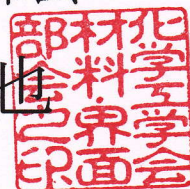 化学工学会
材料・界面
部会之印
也